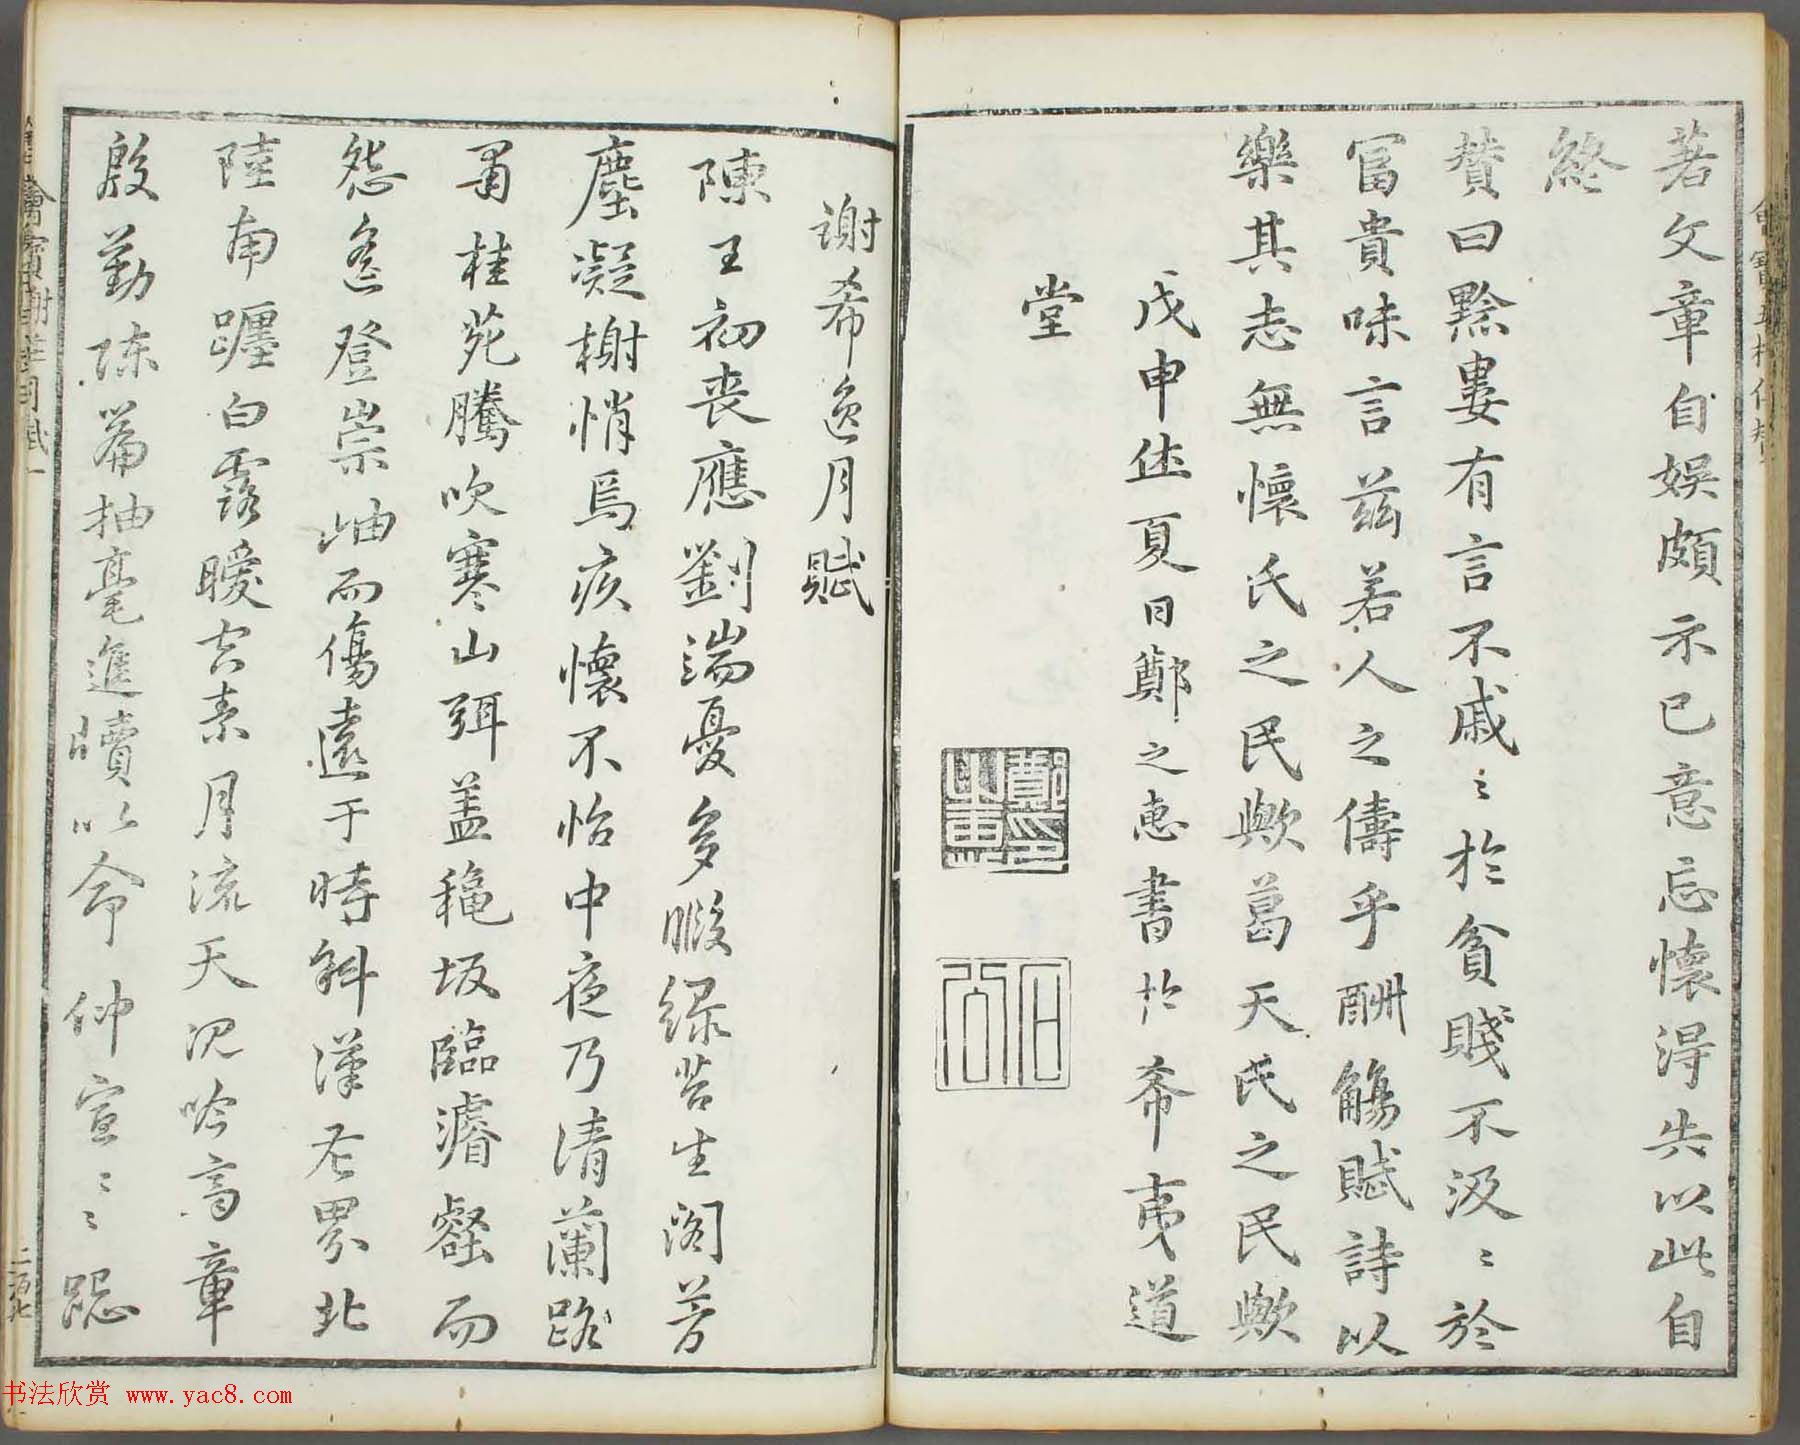 著文章自娱頗示己意忘懷得失以此自
終
賛曰黔婁有言不戚〻於貧賤不汲〻於
冨貴味言茲若人之儔乎酬觴賦詩以
樂其志無懷氏之民歟葛天氏之民歟
戊申仲夏日鄭之惠書於希夷道
堂
謝希逸月賦
陳王初丧應劉端憂多暇緑苔生阁芳
塵凝榭悄焉疚懷不怡中夜乃清蘭路
肅桂苑騰吹寒山弭盖穐坂臨濬壑而
怨遙登崇岫而傷遠于時斜漢左界北
陸南躔白露曖空素月流天沉吟斉章
殷勤陳篇抽毫進牘以命仲宣〻〻跽
書法欣赏 www.yac8.com